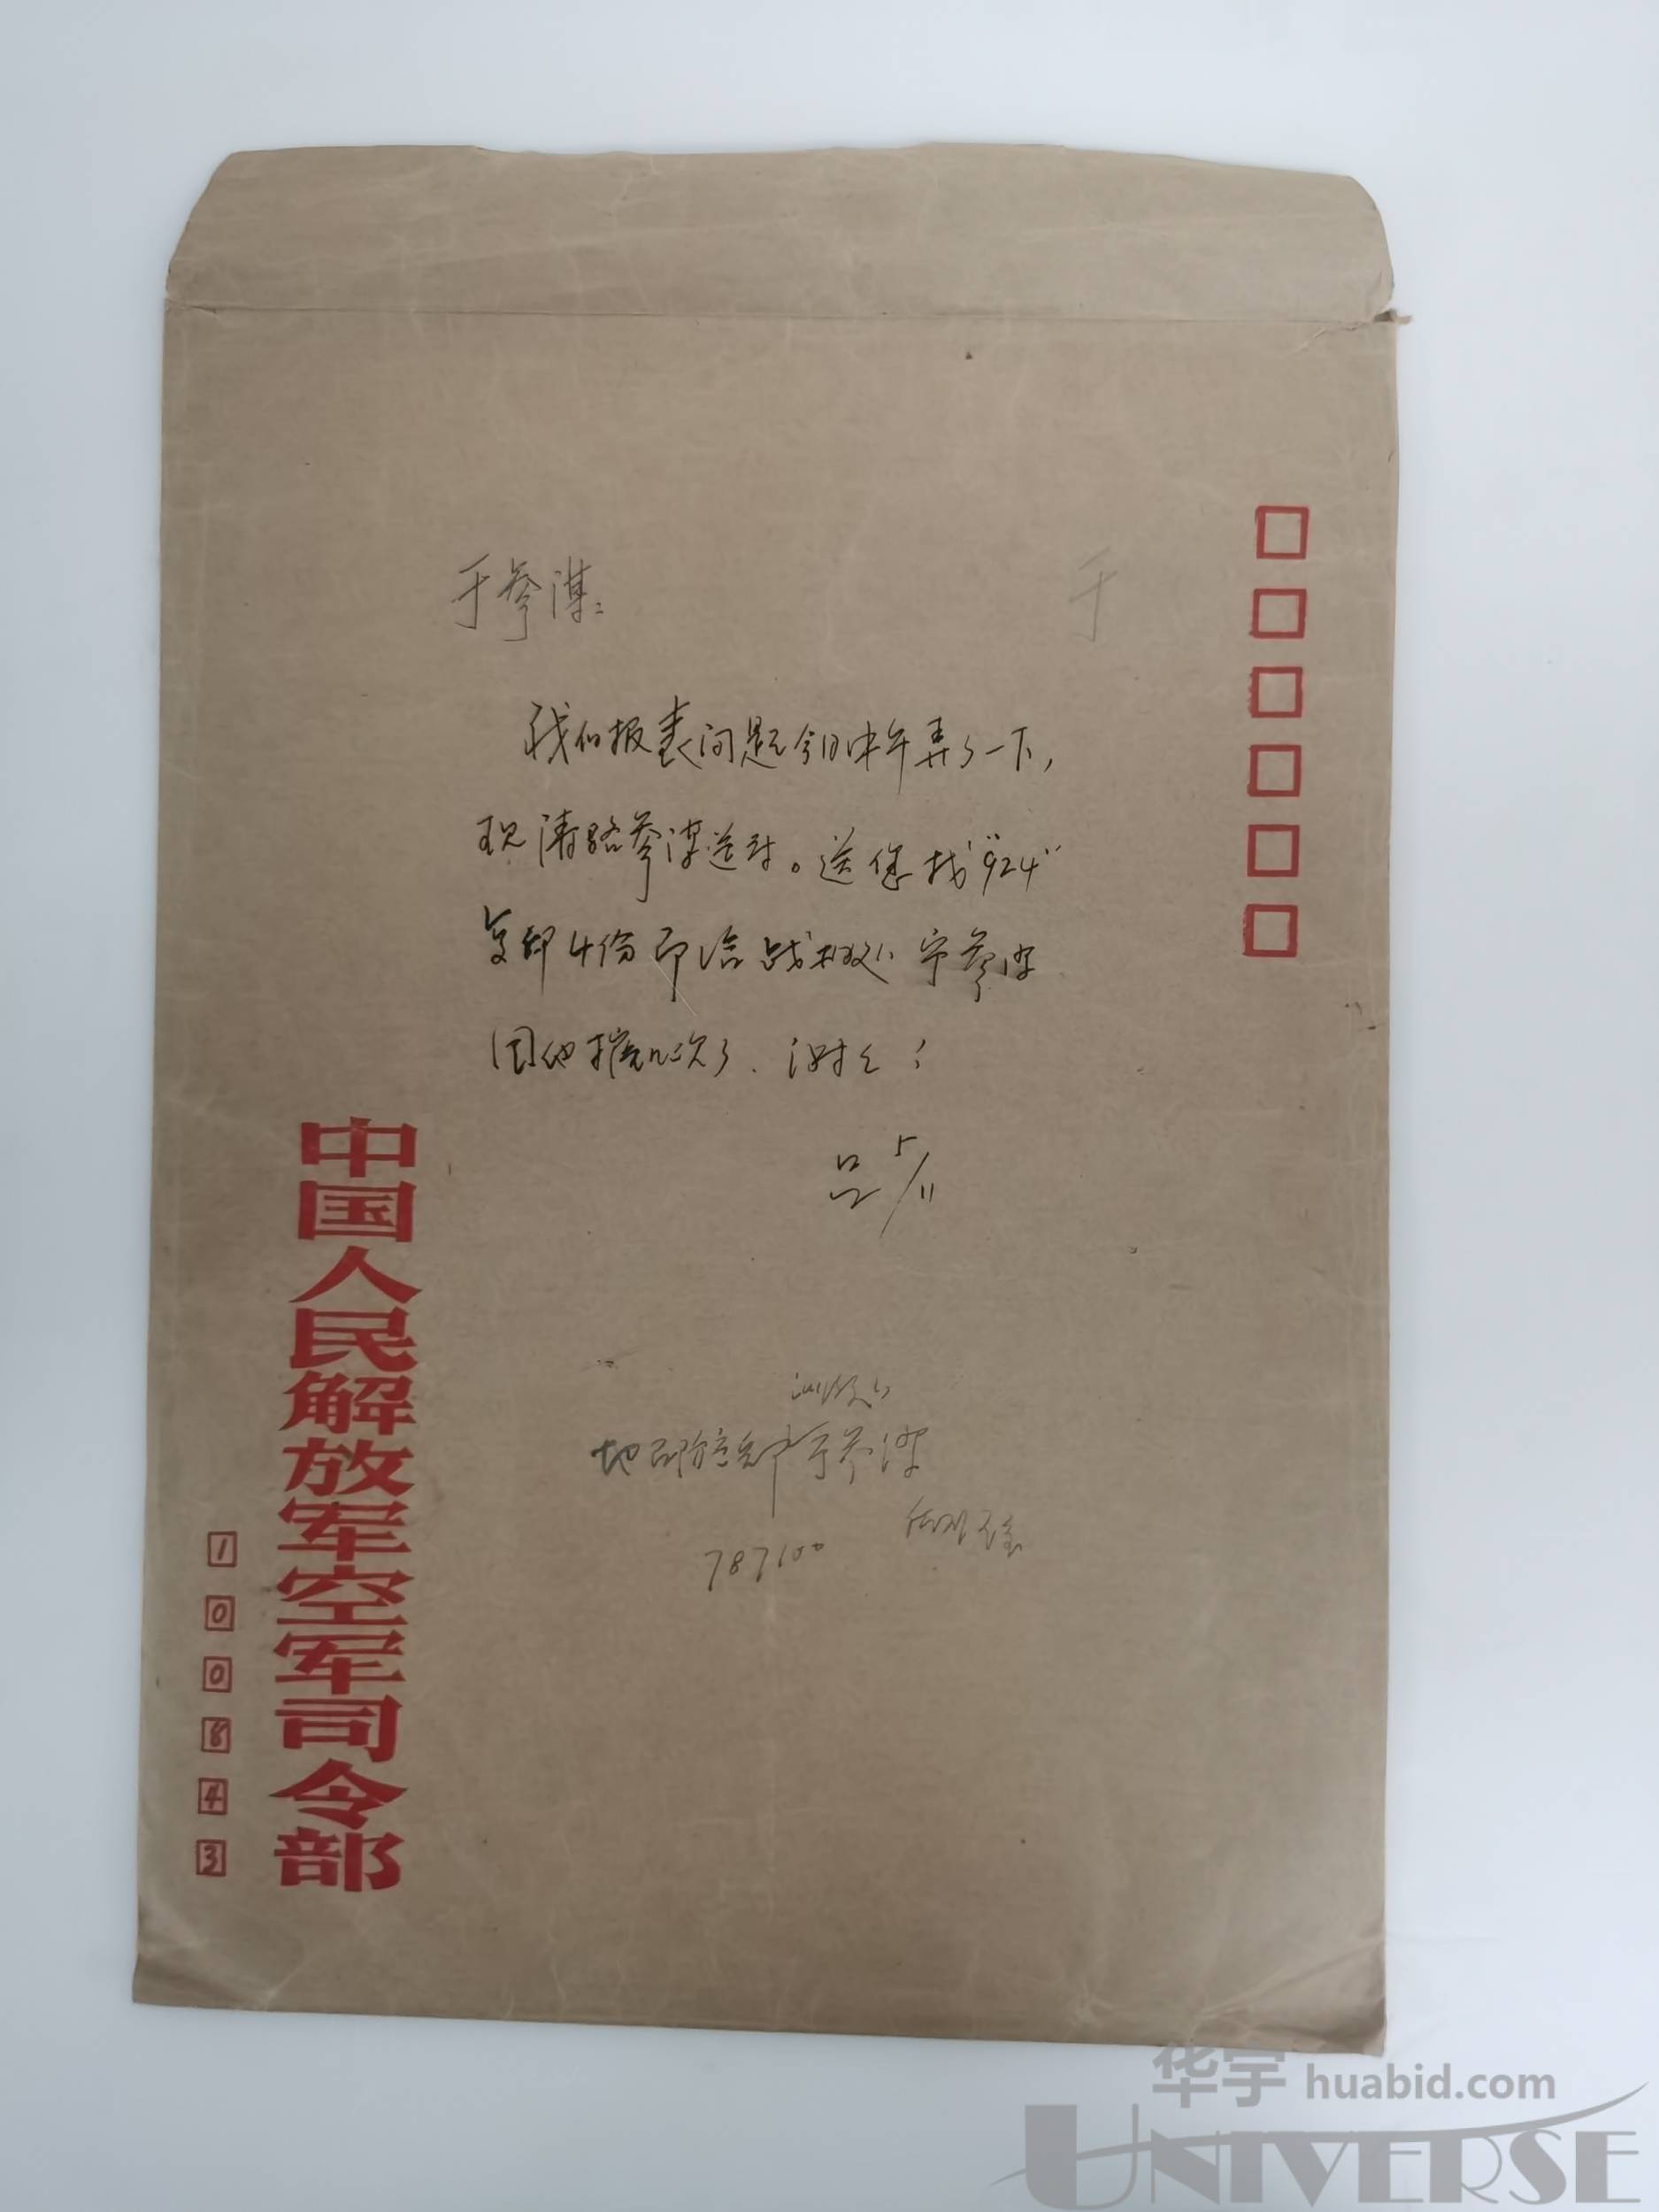 于参谋：
于
我们报表问题今日中午弄了一下，
现请路参谋送讨。送您找“924”
复印4份 即给战 处 宁参谋
因他 几次了．谢谢！
吕 5/11
地 防 部 于参谋
787100
中国人民解放军空军司令部
100843
华宇 huabid.com
UNIVERSE